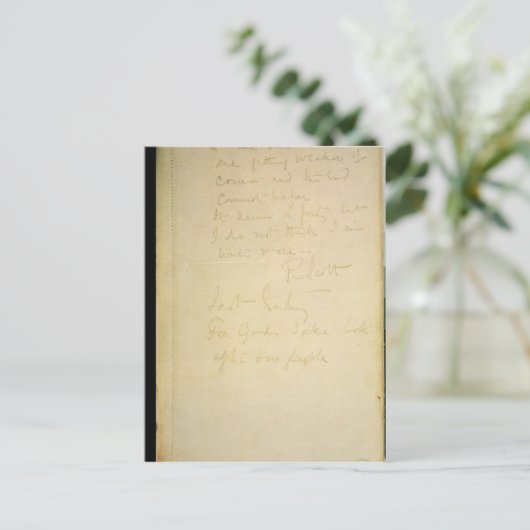 are getting weaker of
course and the end
cannot be far
It seems a pity but
I do not think I can
write more —
R. Scott
Last Entry
For Gods sake look
after our people